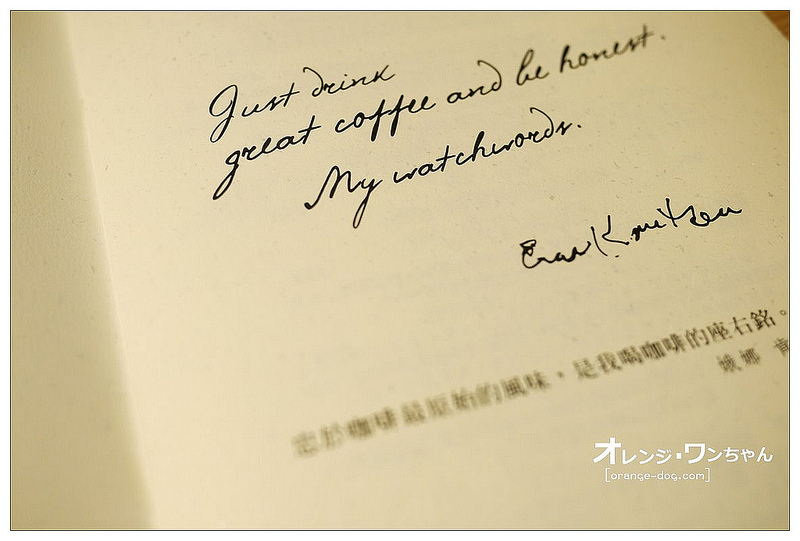 Just drink
great coffee and be honest.
My watchwords.
忠於咖啡最原始的風味,是我喝咖啡的座右銘。
娥娜 肯
オレンジ・ワンちゃん
[orange-dog.com]